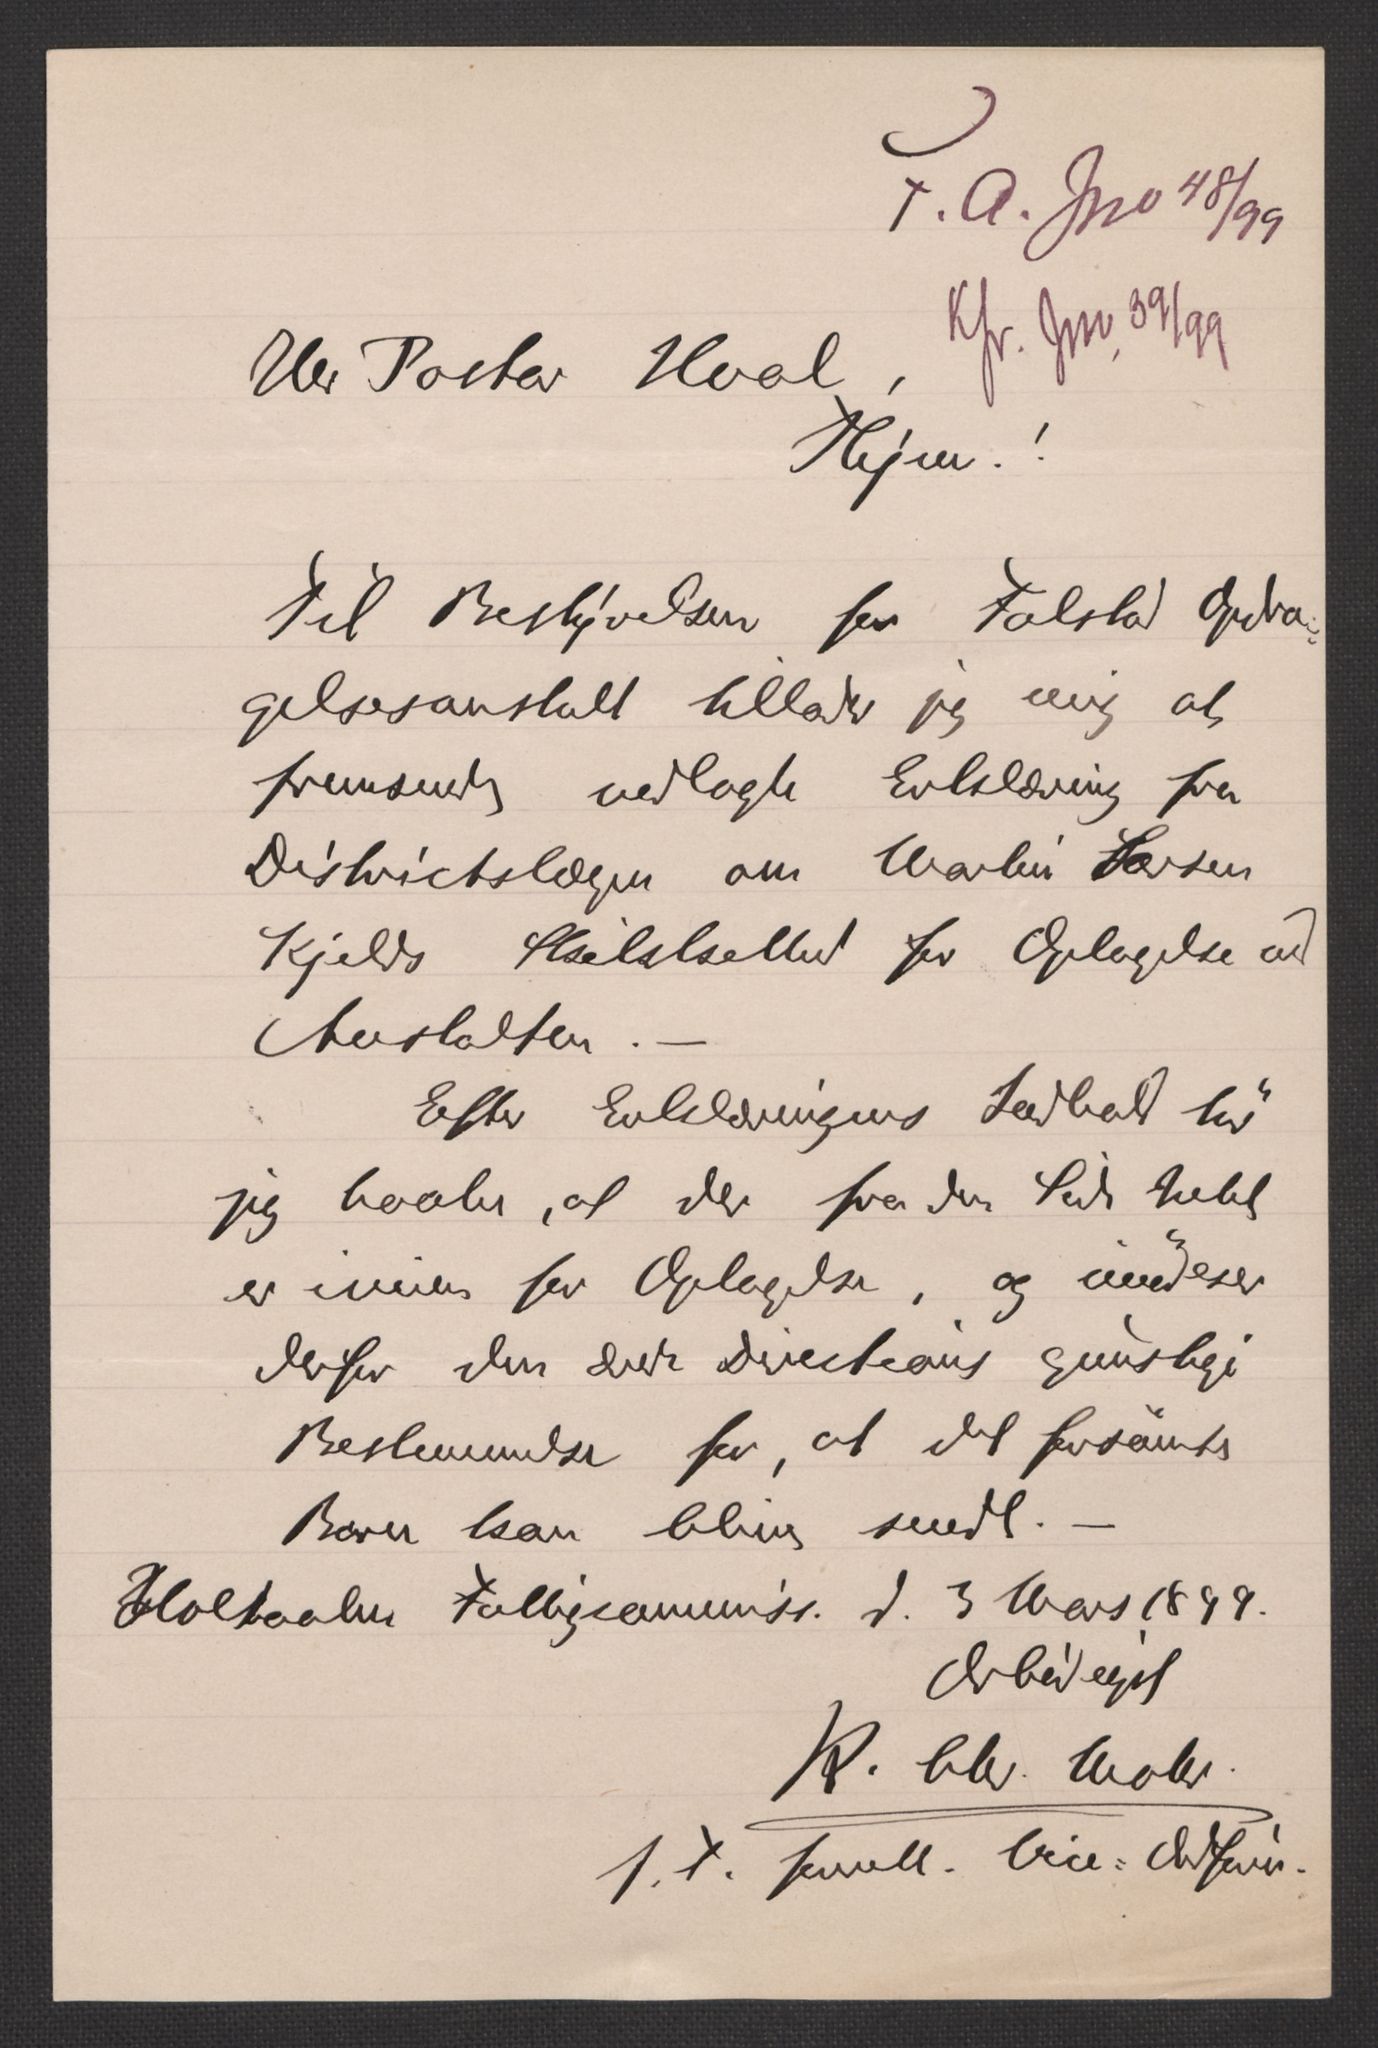 F. A. Jno 48/99
Kfr. Jno. 39/99
Hr Pastor Hval,
Thjem.!
Til Bestyrelsen for Falstad Opdra=
gelsesanstalt tillader jeg mig at
fremsende vedlagte Erklæring fra
Districtslægen om Martin Larsen
Kjelds Skikkethed for Optagelse ved
Anstalten. —
Efter Erklæringens Indhold tør
jeg haabe, at der fra den Side Intet
er iveien for Optagelse, og imødeser
derfor den ærede Directions gunstige
Bestemmelse for, at det forsømte
Barn kan blive sendt. —
Holtaalen Fattigcommiss. d. 3 Mars 1899.
Ærbødigst
K. Chr. Moler.
f. T. Vice=Ordfører.